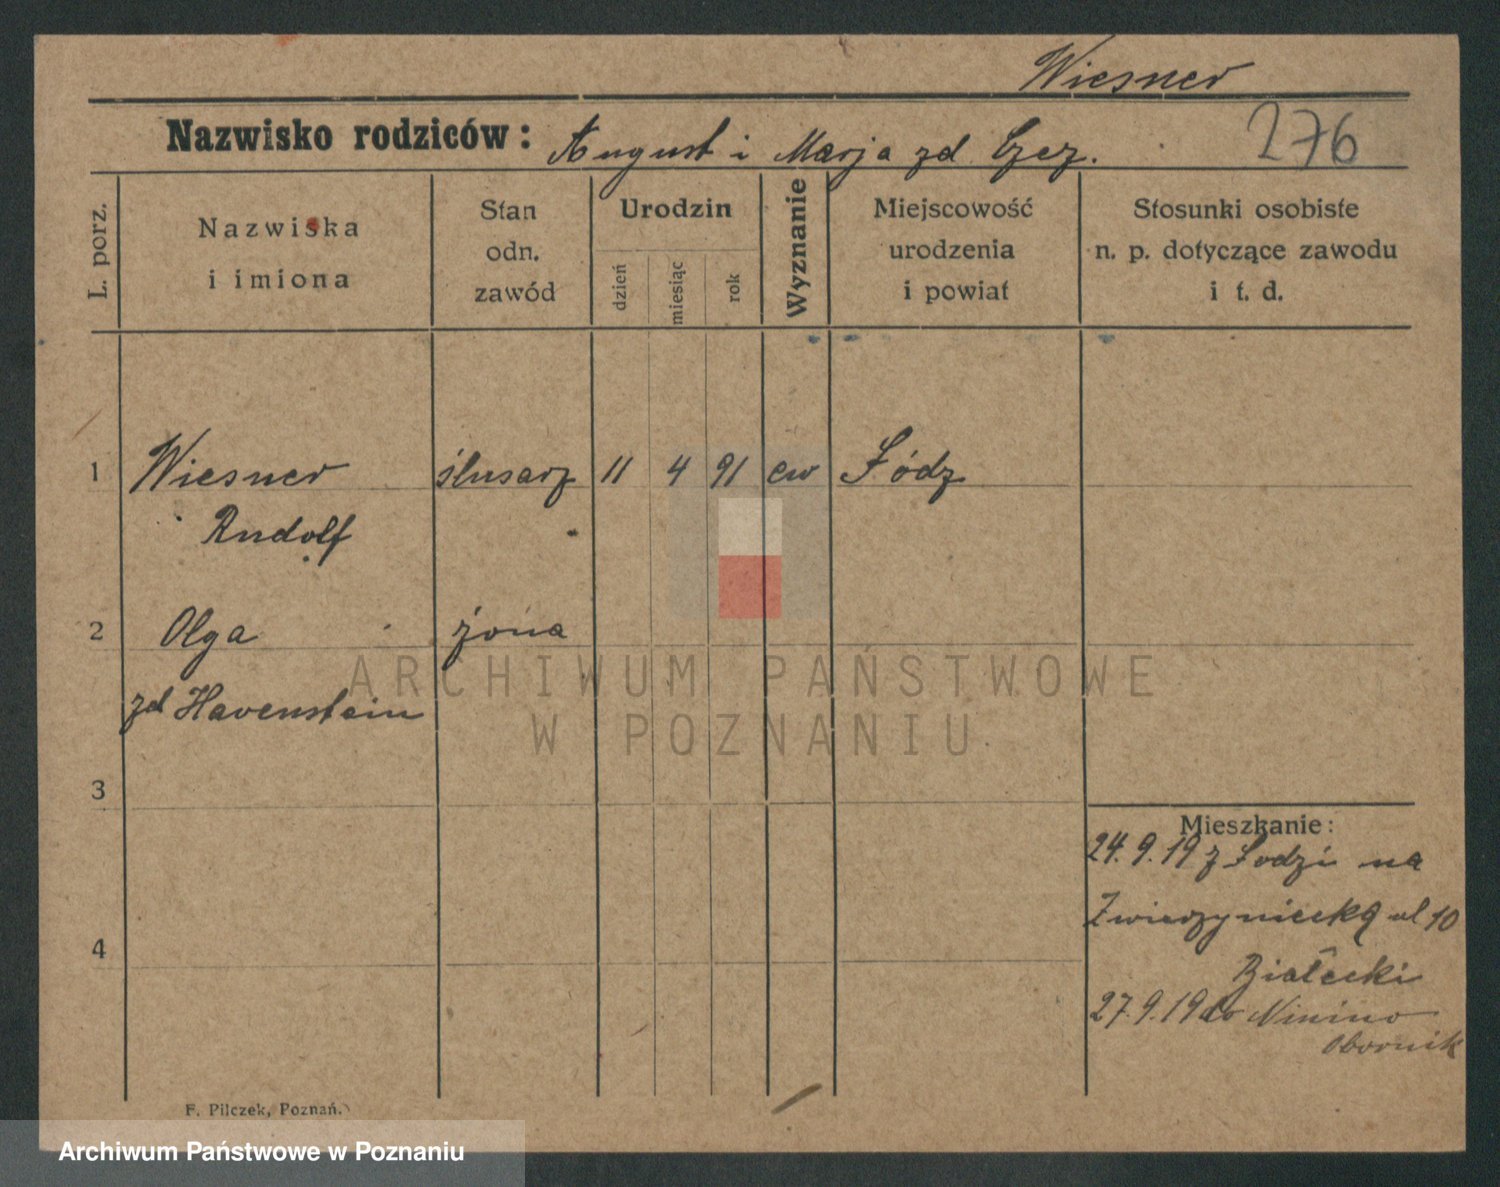 Wiesner
Nazwisko rodziców: August i Marja zd Czez.
276
L. porz.
Nazwiska
i imiona
Stan
odn.
zawód
Urodzin
dzień
miesiąc
rok
Wyznanie
Miejscowość
urodzenia
i powiat
Stosunki osobiste
n. p. dotyczące zawodu
i t. d.
1 Wiesner ślusarz 11 4 91 ew Łódz
Rudolf
2 Olga żona
zd Havenstein
3
4
Mieszkanie:
24.9.19 z Łodzi na
Zwierzyniecką ul 10
Białecki
27.9.19 do Ninino
Obornik
F. Pilczek, Poznań.
ARCHIWUM PAŃSTWOWE
W POZNANIU
Archiwum Państwowe w Poznaniu